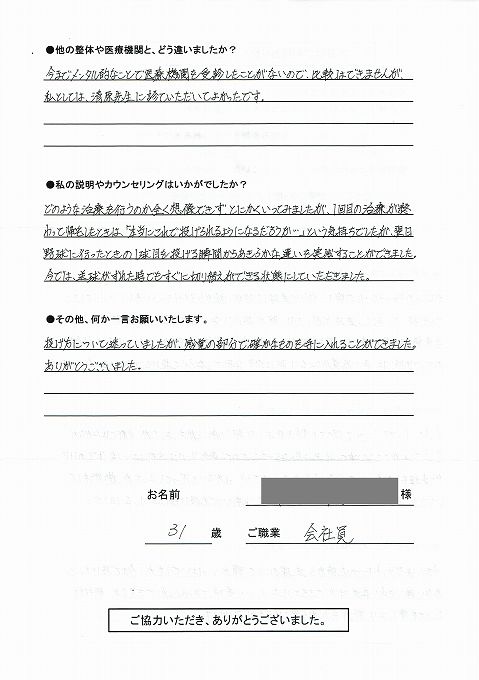 ●他の整体や医療機関と、どう違いましたか？
今までメンタル的なことで医療機関を受診したことがないので、比較はできませんが、
私としては、清原先生に診ていただいてよかったです。
●私の説明やカウンセリングはいかがでしたか？
どのような治療を行うのか全く想像できず とにかくいってみましたが、1回目の治療が終
わって帰宅したときは、「本当にこれで投げられるようになるだろうか…」という気持ちでしたが、翌日
野球に行ったときの1球目を投げる瞬間からあきらかな違いを実感することができました。
今では、送球がずれた時でもすぐに切り替えができる状態にしていただきました。
●その他、何か一言お願いいたします。
投げ方について迷っていましたが、感覚の部分で確かなものを手に入れることができました。
ありがとうございました。
お名前 様
31 歳 ご職業 会社員
ご協力いただき、ありがとうございました。